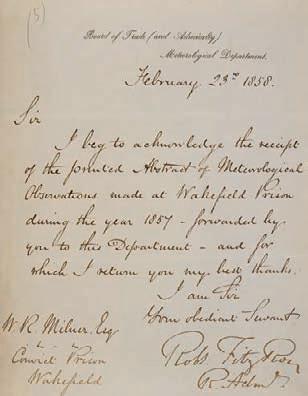 (5)
Board of Trade (and Admiralty)
Meteorological Department.
February 23rd 1858.
Sir
I beg to acknowledge the receipt
of the printed Abstract of Meteorological
Observations made at Wakefield Prison
during the year 1857 - forwarded by
you to this Department - and for
which I return you my best thanks.
I am Sir
Your obedient Servant
W. R. Milner. Esq
Robt FitzRoy
Convict Prison
R. Adml.
Wakefield